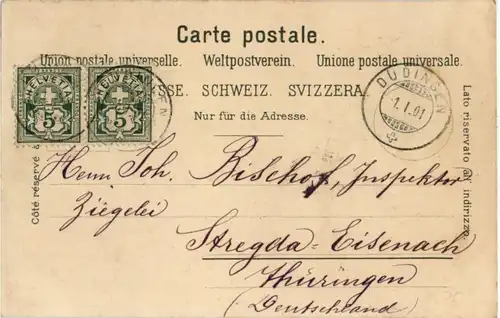 Carte postale.
Union postale universelle. Weltpostverein. Unione postale universale.
SSE. SCHWEIZ. SVIZZERA.
Nur für die Adresse.
HELVETIA HELVETIA
5 5
DÜDINGEN
1.I.01
Côté réservé à
Lato riservato all indirizzo.
Herrn Joh. Bischof, Inspektor
Ziegelei
Stregda-Eisenach
Thüringen
(Deutschland)